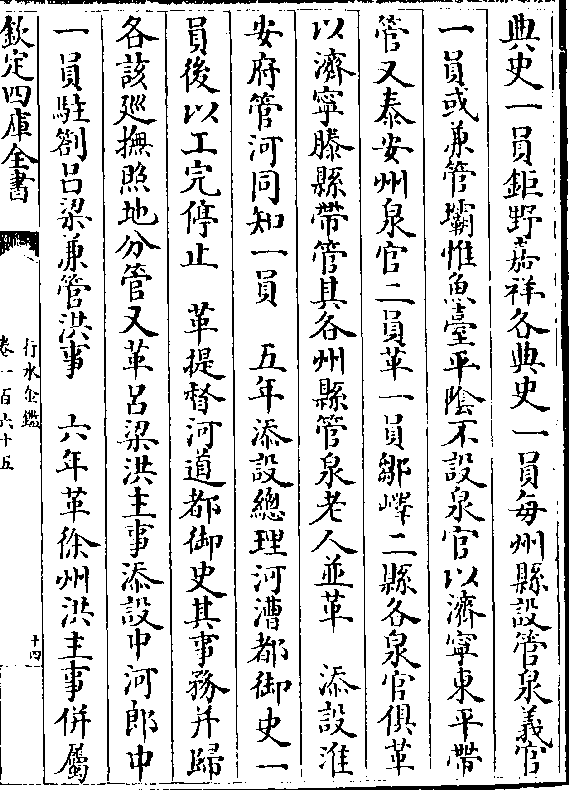 典史一員鉅野嘉祥各典史一員每州縣設管泉義官
一員或兼管壩惟魚臺平陰不設泉官以濟寧東平帶
管又泰安州泉官二員革一員鄒嶧二縣各泉官俱革
以濟寧滕縣帶管其各州縣管泉老人並革　添設淮
安府管河同知一員　五年添設總理河漕都御史一
員後以工完停止　革提督河道都御史其事務并歸
各該廵撫照地分管又革呂梁洪主事添設中河郎中
一員駐劄呂梁兼管洪事　六年革徐州洪主事併屬
欽定四庫全書
行水金鑑
卷一百六十五
十四